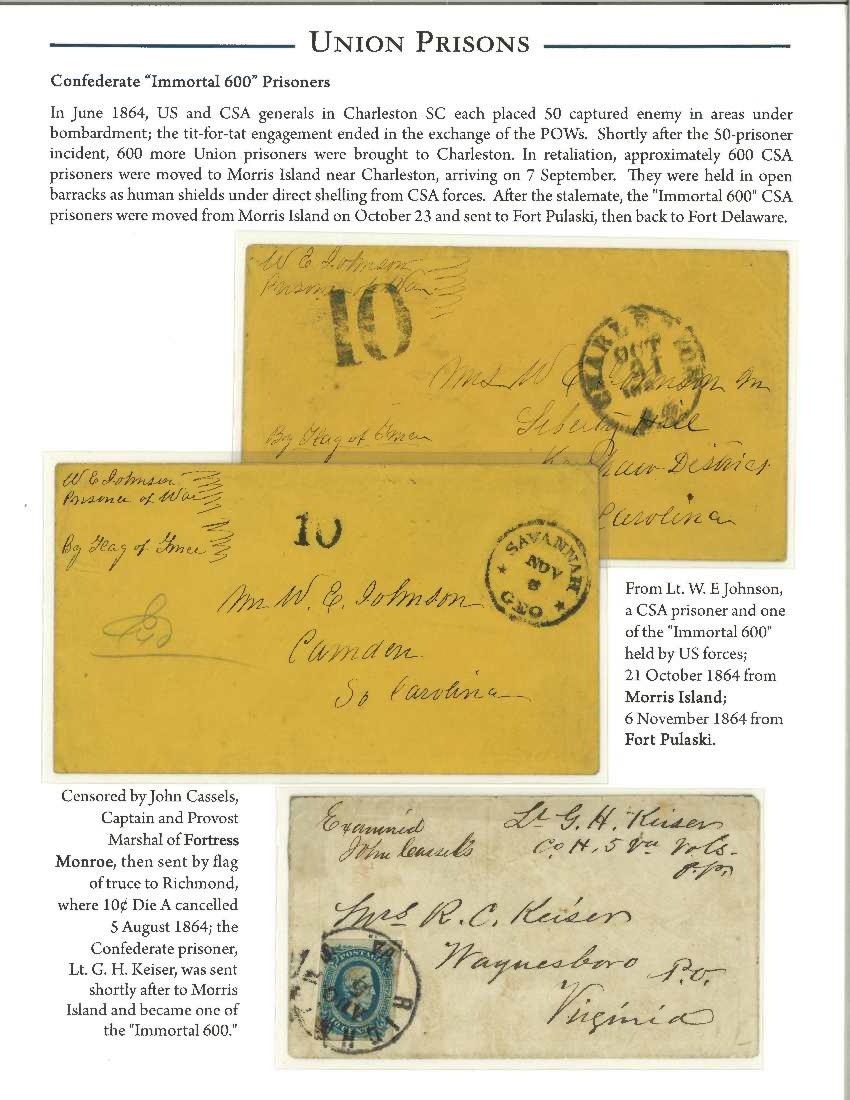 UNION PRISONS
Confederate "Immortal 600" Prisoners
In June 1864, US and CSA generals in Charleston SC each placed 50 captured enemy in areas under
bombardment; the tit-for-tat engagement ended in the exchange of the POWs. Shortly after the 50-prisoner
incident, 600 more Union prisoners were brought to Charleston. In retaliation, approximately 600 CSA
prisoners were moved to Morris Island near Charleston, arriving on 7 September. They were held in open
barracks as human shields under direct shelling from CSA forces. After the stalemate, the "Immortal 600" CSA
prisoners were moved from Morris Island on October 23 and sent to Fort Pulaski, then back to Fort Delaware.
W E Johnson
Prisoner of War
10
OCT
21
Mrs W E Johnson
Liberty Hill
By Flag of Truce
District
Carolina
W E Johnson
Prisoner of War
By Flag of Truce
10
SAVANNAH
NOV
GEO
Mr W. E. Johnson
Camden
So Carolina
From Lt. W. E Johnson,
a CSA prisoner and one
of the "Immortal 600"
held by US forces;
21 October 1864 from
Morris Island;
6 November 1864 from
Fort Pulaski.
Censored by John Cassels,
Captain and Provost
Marshal of Fortress
Monroe, then sent by flag
of truce to Richmond,
where 10¢ Die A cancelled
5 August 1864; the
Confederate prisoner,
Lt. G. H. Keiser, was sent
shortly after to Morris
Island and became one of
the "Immortal 600."
Examined
John Cassels
Lt G. H. Keiser
Co H. 5 Va Vols.
Mrs R. C. Keiser
Waynesboro P.O.
Virginia
POSTAGE